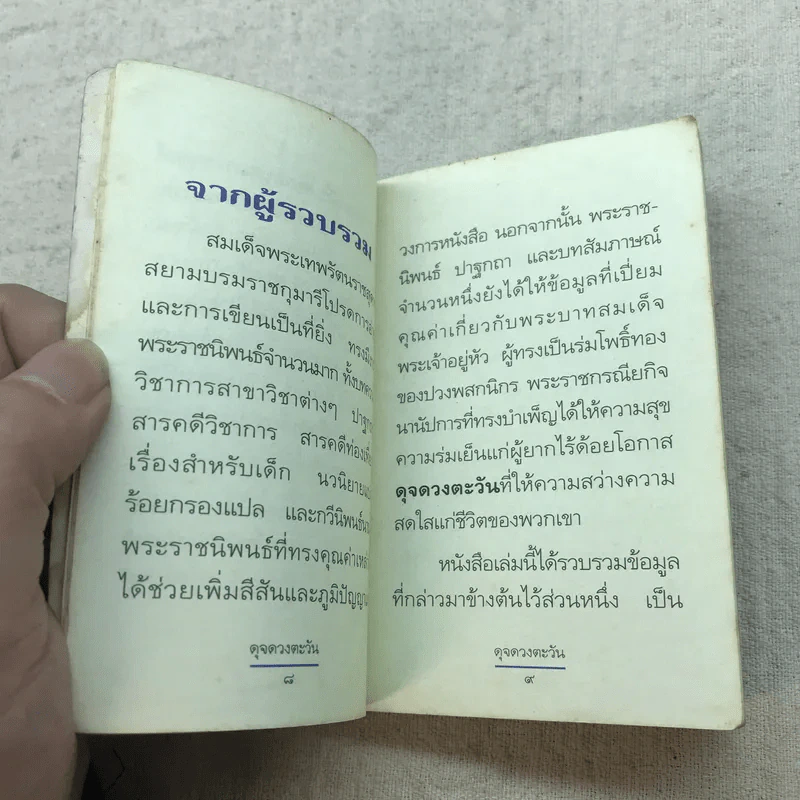 จากผู้รวบรวม
สมเด็จพระเทพรัตนราชสุด
สยามบรมราชกุมารีโปรดการอ่
และการเขียนเป็นที่ยิ่ง ทรงมี
พระราชนิพนธ์จำนวนมาก ทั้งบทคว
วิชาการสาขาวิชาต่างๆ ปาฐก
สารคดีวิชาการ สารคดีท่องเที่
เรื่องสำหรับเด็ก นวนิยาย
ร้อยกรองแปล และกวีนิพนธ์
พระราชนิพนธ์ที่ทรงคุณค่าเหล่
ได้ช่วยเพิ่มสีสันและภูมิปัญญา
ดุจดวงตะวัน
๘
วงการหนังสือ นอกจากนั้น พระราช-
นิพนธ์ ปาฐกถา และบทสัมภาษณ์
จำนวนหนึ่งยังได้ให้ข้อมูลที่เปี่ยม
คุณค่าเกี่ยวกับพระบาทสมเด็จ
พระเจ้าอยู่หัว ผู้ทรงเป็นร่มโพธิ์ทอง
ของปวงพสกนิกร พระราชกรณียกิจ
นานัปการที่ทรงบำเพ็ญได้ให้ความสุข
ความร่มเย็นแก่ผู้ยากไร้ด้อยโอกาส
ดุจดวงตะวันที่ให้ความสว่างความ
สดใสแก่ชีวิตของพวกเขา
หนังสือเล่มนี้ได้รวบรวมข้อมูล
ที่กล่าวมาข้างต้นไว้ส่วนหนึ่ง เป็น
ดุจดวงตะวัน
๙